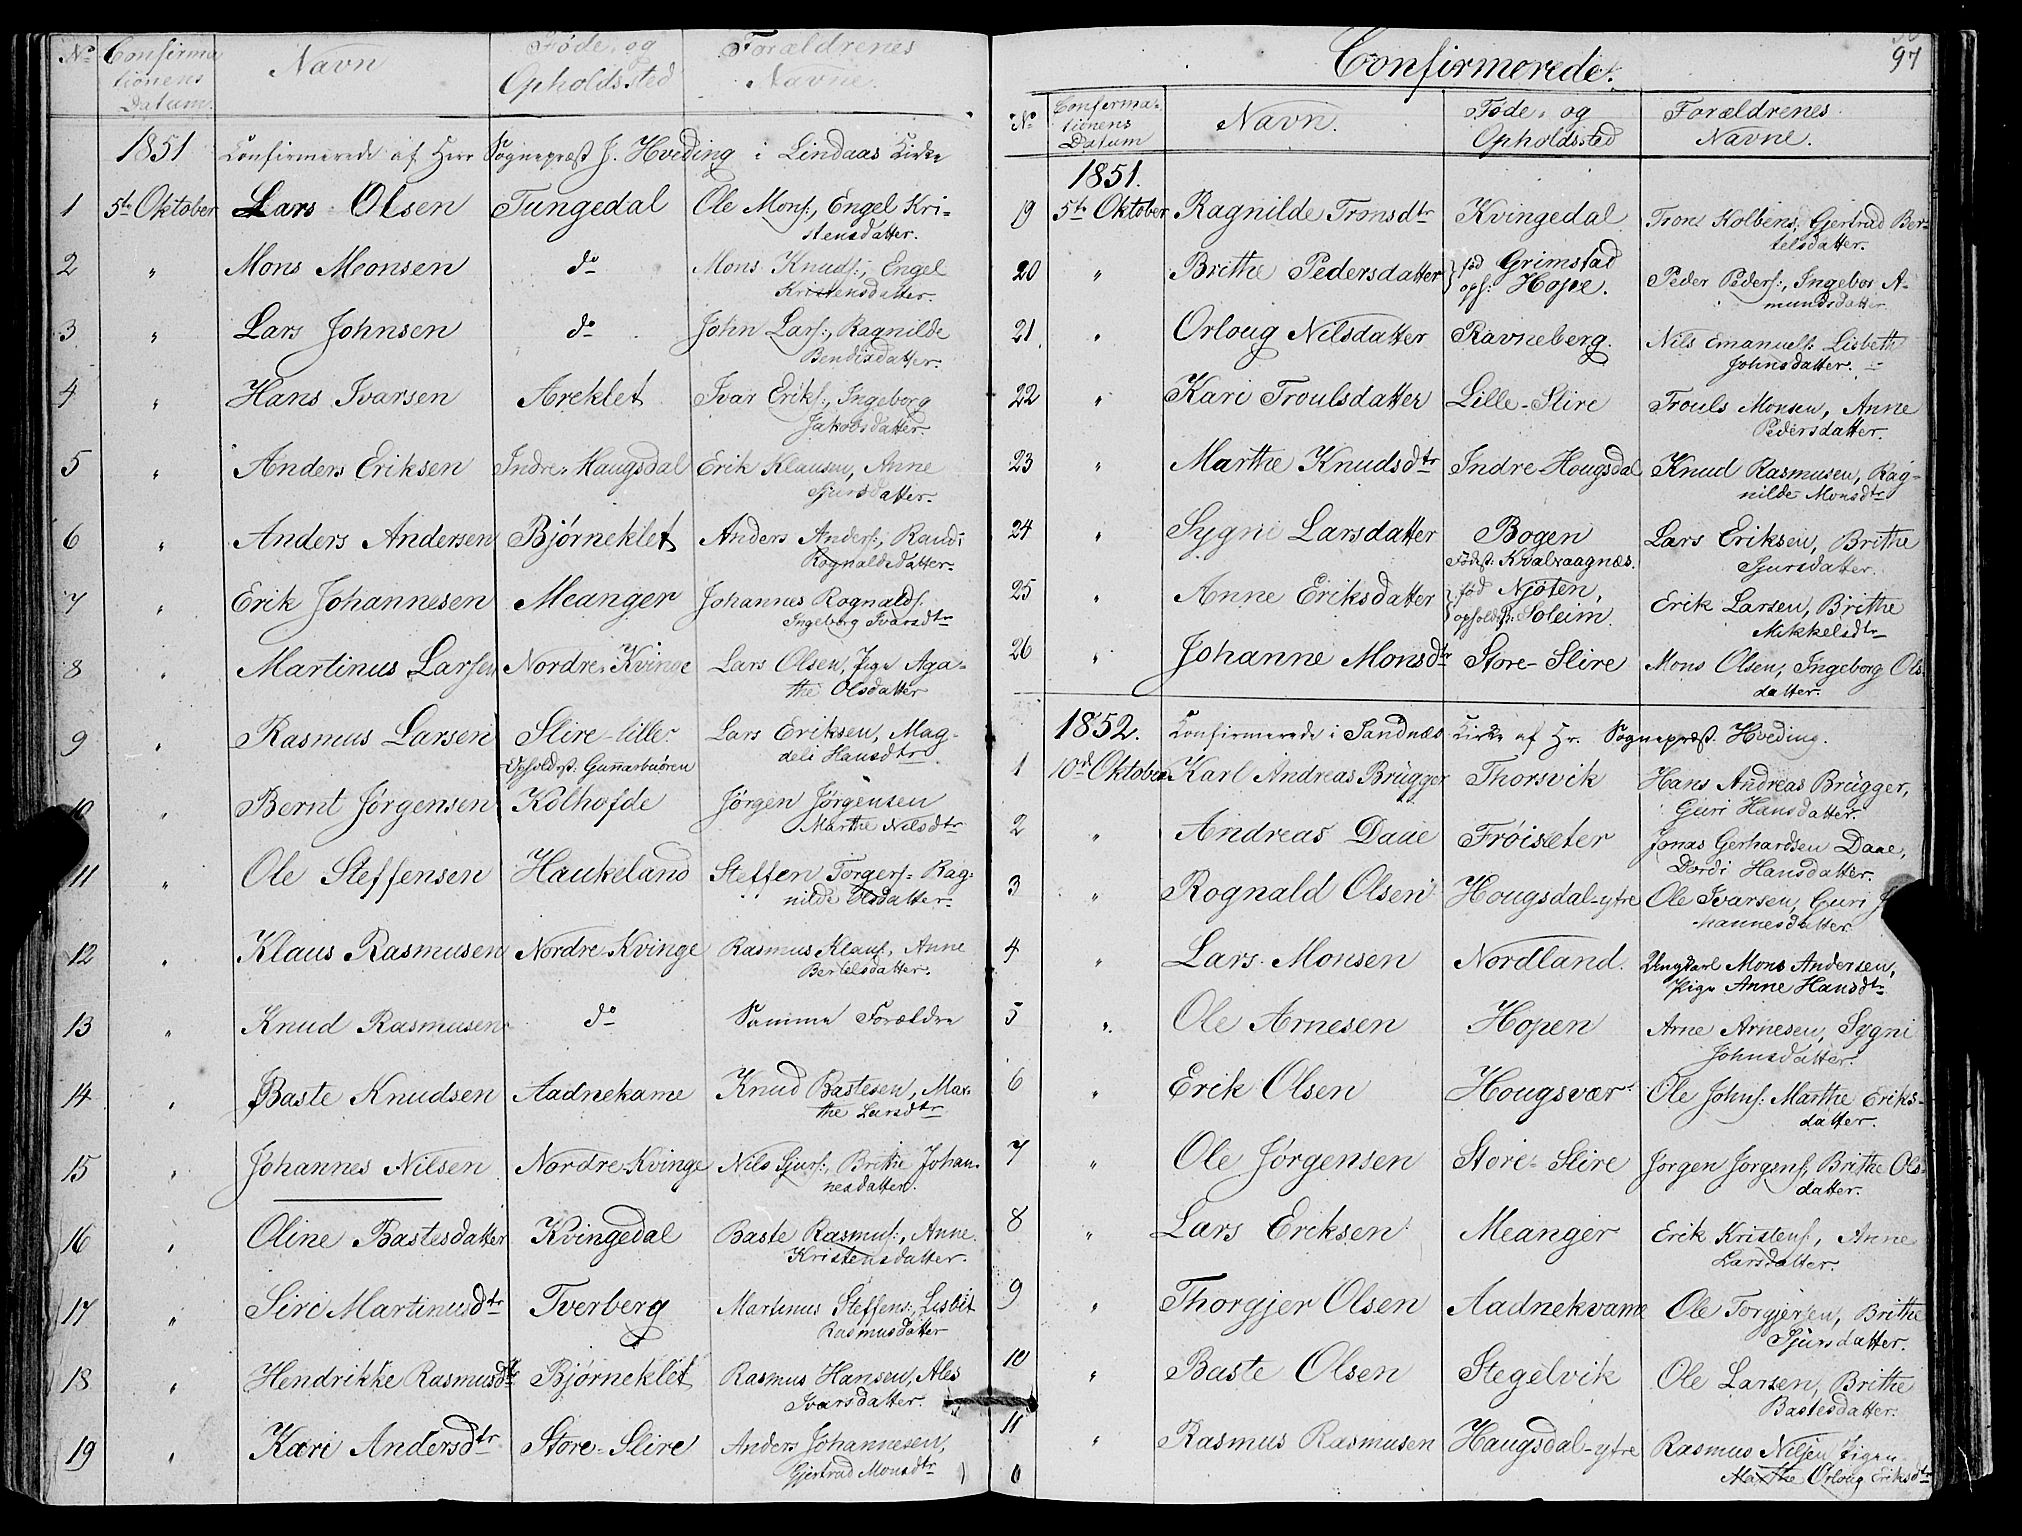 No
Confirma
tionens
Datum.
Navn
Føde og
Opholdssted
Forældrenes
Navne.
1851 Confirmerede af Herr Sognepræst J. Hveding i Lindaas Kirke
1 5te Oktober Lars Olsen Tungedal Ole Mons:, Engel Kri-
stensdatter.
2 " Mons Monsen do Mons Knuds:, Engel
Kristensdatter.
3 " Lars Johnsen do John Lars:, Ragnilde
Bendixdatter.
4 " Hans Ivarsen Areklet Ivar Eriks:, Ingeborg
Jakobsdatter.
5 " Anders Eriksen Indre-Haugsdal Erik Klausen, Anne
Sjursdatter.
6 " Anders Andersen Bjørneklet Anders Anders:, Randi
Rognaldsdatter.
7 " Erik Johannesen Meanger Johannes Rognalds:
Ingeborg Ivarsdtr
8 " Martinus Larsen Nordre-Kvinge Lars Olsen, Pige Aga-
the Olsdatter
9 " Rasmus Larsen Slire-lille Lars Eriksen, Mag-
Opholdsst: Gunnarbuøren deli Hansdtr
10 " Bernt Jørgensen Kolhofde Jørgen Jørgensen
Marthe Nilsdtr
11 " Ole Steffensen Haukeland Steffen Torgers:- Rag-
nilde Olsdatter.
12 " Klaus Rasmusen Nordre-Kvinge Rasmus Klaus:, Anne
Bertelsdatter.
13 " Knud Rasmusen do Samme Forældre
14 " Baste Knudsen Aadnekame Knud Bastesen, Mar-
the Larsdtr
15 " Johannes Nilsen Nordre-Kvinge Nils Sjurs:, Brithe Johan-
nesdatter.
16 " Oline Bastesdatter Kvingedal Baste Rasmus:, Anne
Kristensdatter.
17 " Siri Martinusdtr Tverberg Martinus Steffens:, Lisbet
Rasmusdatter
18 " Hendrikke Rasmusdtr Bjørneklet Rasmus Hansen, Ales
Ivarsdatter.
19 " Kari Andersdtr Store-Slire Anders Johannesen,
Gjertrud Monsdtr
97
Confirmerede.
No
Conferma-
tionens
Datum
Navn.
Føde- og
Opholdssted
Forældrenes
Navne.
1851.
19 5te Oktober Ragnilde Tronsdtr Kvingedal Tron Kolbens: Gjertrud Ber-
telsdatter.
20 " Brithe Pedersdatter fød Grimstad
oph: Hope. Peder Peders:, Ingebor A-
mundsdatter
21 " Orloug Nilsdatter Ravneberg. Nils Emanuels: Lisbeth
Johnsdatter.
22 " Kari Troulsdatter Lille-Slire Trouls Monsen, Anne
Pedersdatter.
23 " Marthe Knudsdtr Indre-Hougsdal Knud Rasmusen, Rag-
nilde Monsdtr
24 " Sygni Larsdatter Bogen Lars Eriksen, Brithe
Fødst: Kvalvaagnæs. Sjursdatter.
25 " Anne Eriksdatter fød Njøten,
opholdsst: Soleim. Erik Larsen, Brithe
Mikkelsdtr
26 " Johanne Monsdtr Store-Slire Mons Olsen, Ingeborg Ols-
datter.
1852. Confirmerede i Sandnæs Kirke af Hr. Sognepræst Hveding.
1 10de Oktober Karl Andreas Brügger Thorsvik Hans Andreas Brügger,
Guri Hansdatter.
2 " Andreas Daae Frøisæter Jonas Gerhardsen Daae,
Dordi Hansdatter.
3 " Rognald Olsen Hougsdal-ytre Ole Ivarsen, Guri
hannesdatter
4 " Lars Monsen Nordland. Ungkarl Mons Andersen,
Pige Anne Hansdtr
5 " Ole Arnesen Hopen Arne Arnesen, Sygni
Johnsdatter.
6 " Erik Olsen Hougsvær Ole Johns: Marthe Eriks-
datter.
7 " Ole Jørgensen Store-Slire Jorgen Jorgens:, Brithe Ols-
datter.
8 " Lars Eriksen Meanger Erik Kristens:, Anne
Larsdatter.
9 " Thorgjer Olsen Aadnekvame Ole Torgjersen, Brithe
Sjursdatter.
10 " Baste Olsen Stegelvik Ole Larsen, Brithe
Bastesdatter.
11 " Rasmus Rasmusen Haugsdal-ytre Rasmus Nilsen, Pigen
Marthe Orloug Eriksdtr